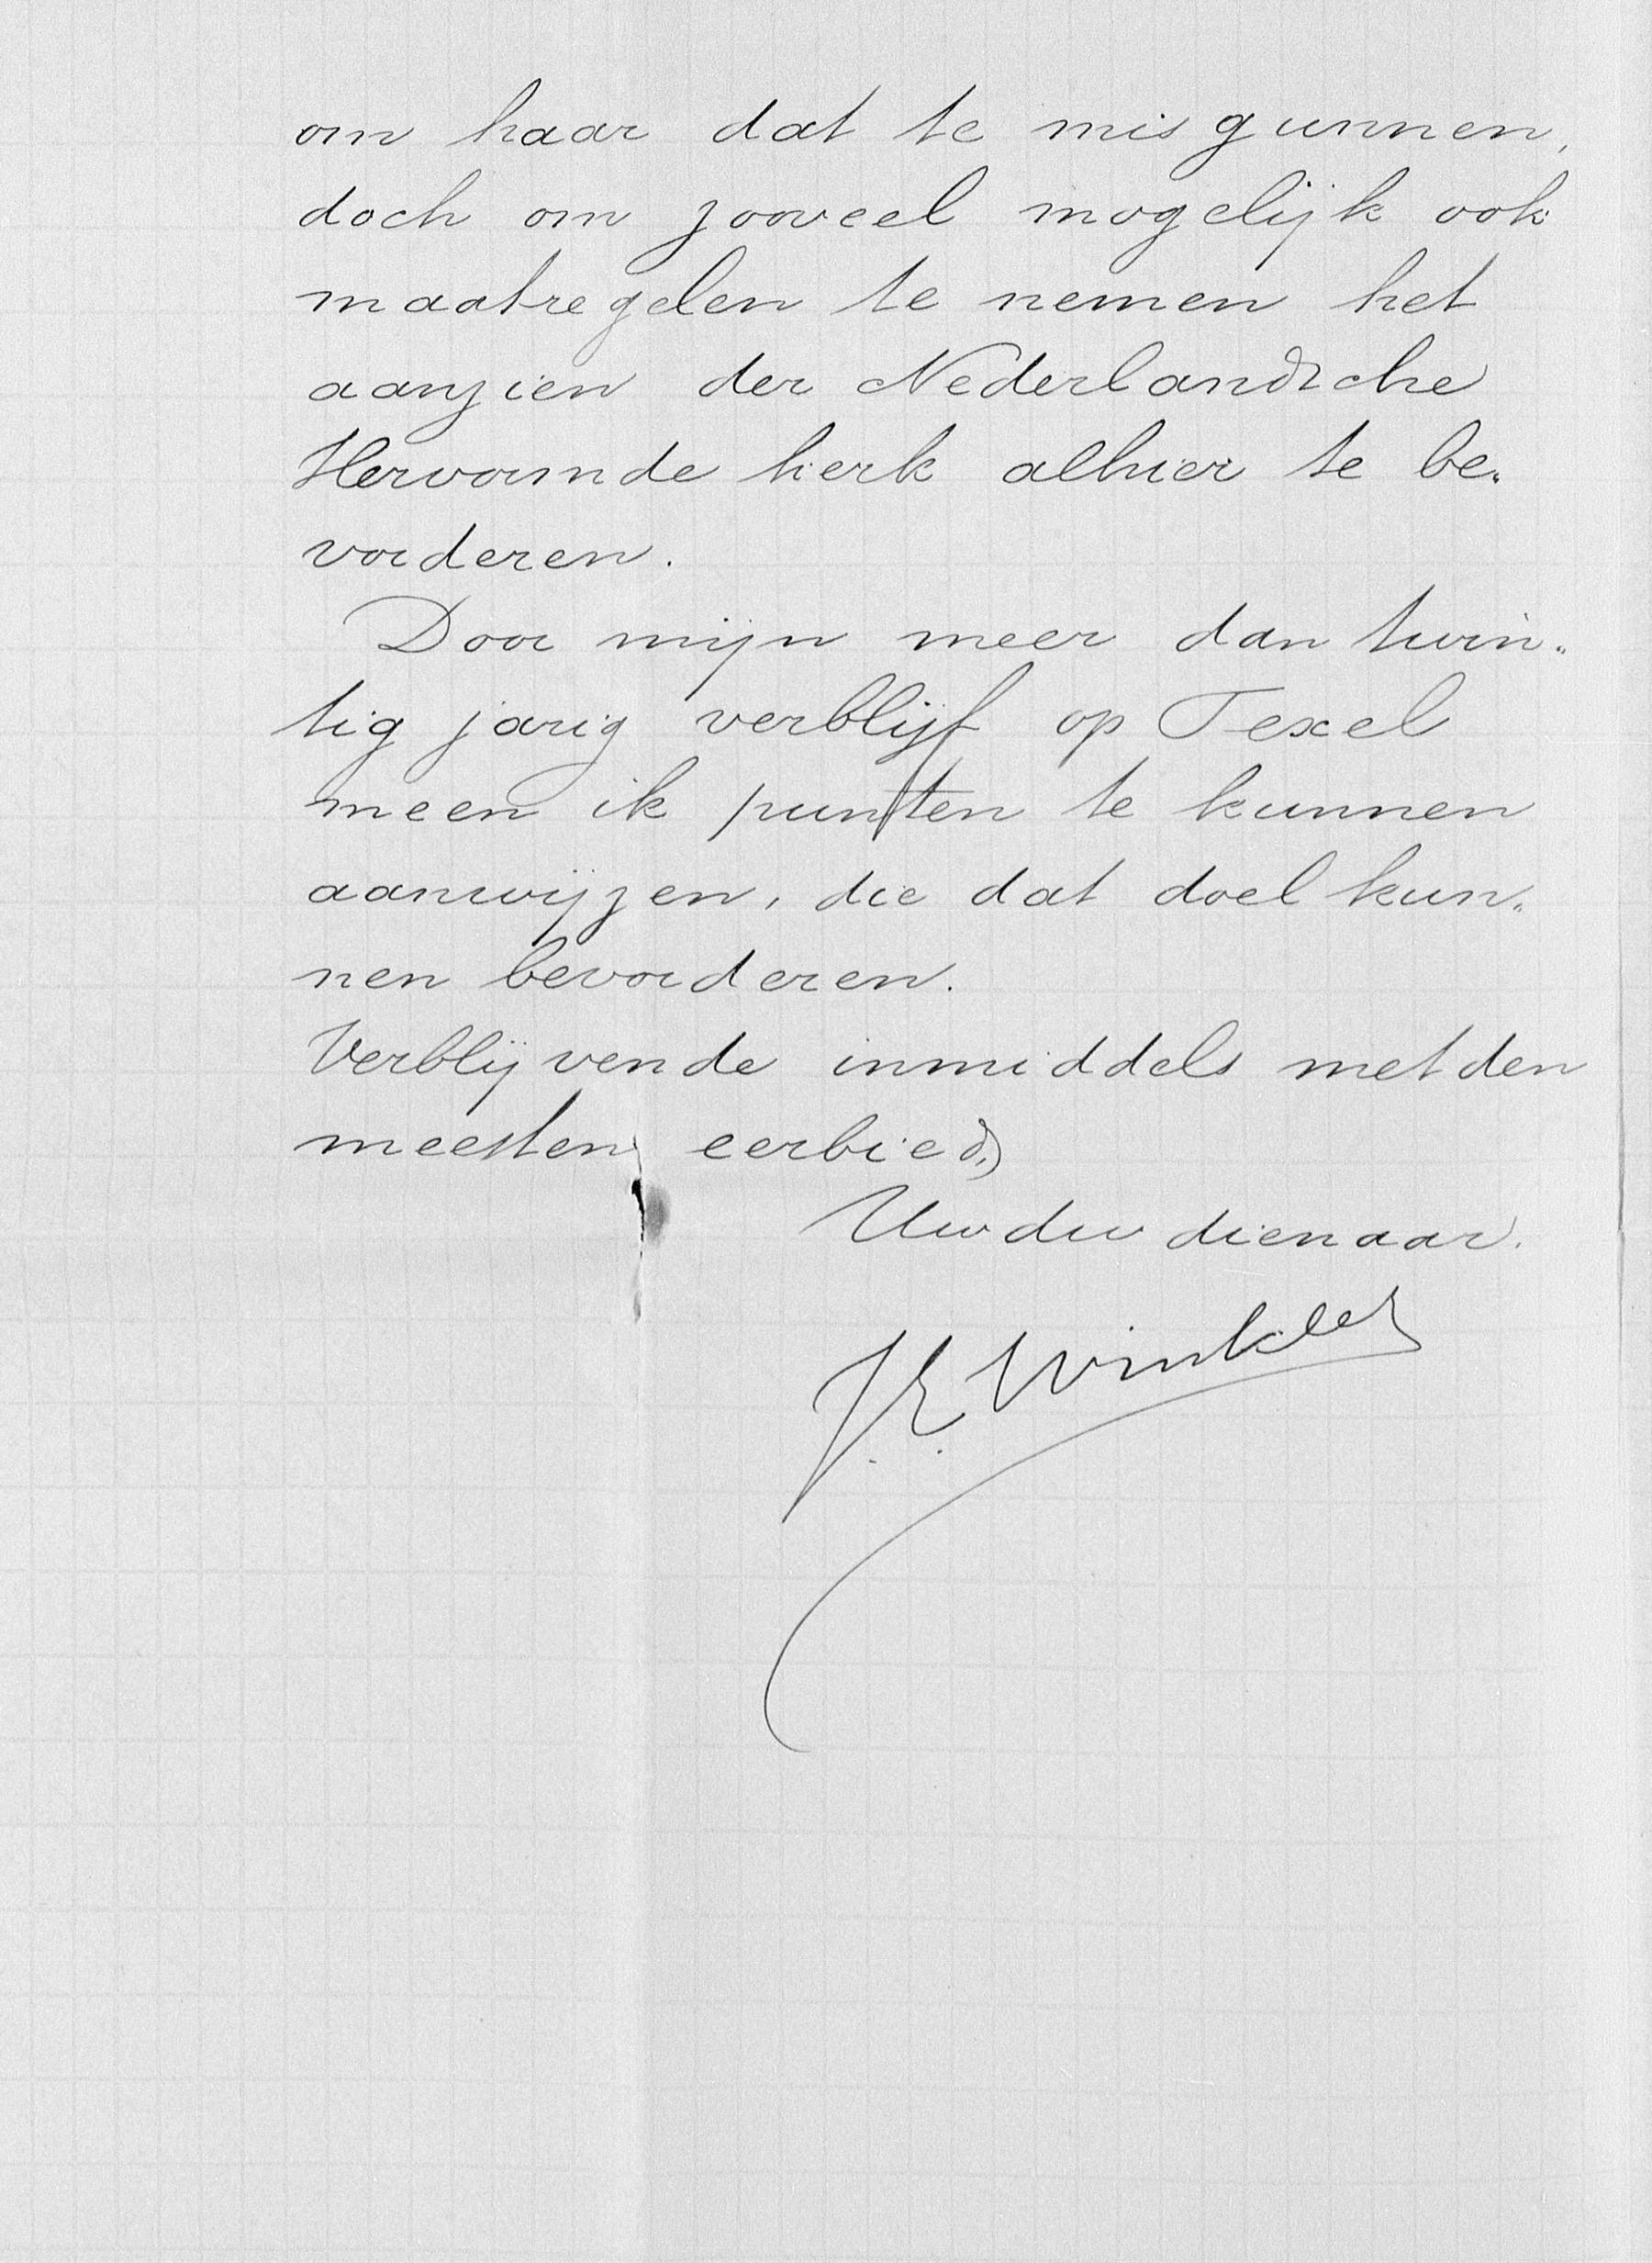 om haar dat te misgunnen,
doch om zooveel mogelijk ook
maatregelen te nemen het
aanzien der Nederlandsche
Hervormde kerk alhier te be„
vorderen.
Door mijn meer dan twin„
tig jarig verblijf op Texel
meen ik punten te kunnen
aanwijzen, die dat doel kun„
nen bevorderen.
Verblijvende inmiddels met den
meesten eerbied,
Uw dw dienaar.
J. E. Winkler